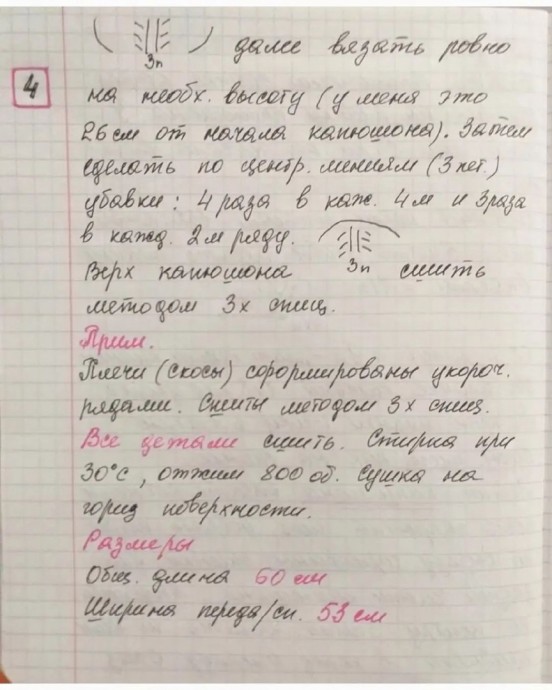 3п далее вязать ровно
4
на необх. высоту (у меня это
26 см от начала капюшона). Затем
сделать по центр. линиям (3 пет.)
убавки: 4 раза в каж. 4м и 3 раза
в кажд. 2м ряду. 3п
Верх капюшона сшить
методом 3х спиц.
Прим.
Плечи (скосы) сформированы укороч.
рядами. Сшиты методом 3х спиц.
Все детали сшить. Стирка при
30°с, отжим 800 об. сушка на
гориз поверхности.
Размеры
Общ. длина 60 см
Ширина переда/сп. 53 см